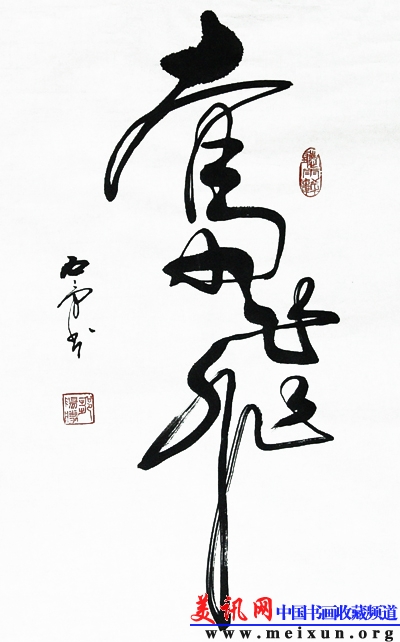 奮飛
聽雨軒
美讯网 中国书画收藏频道
www.meixun.org